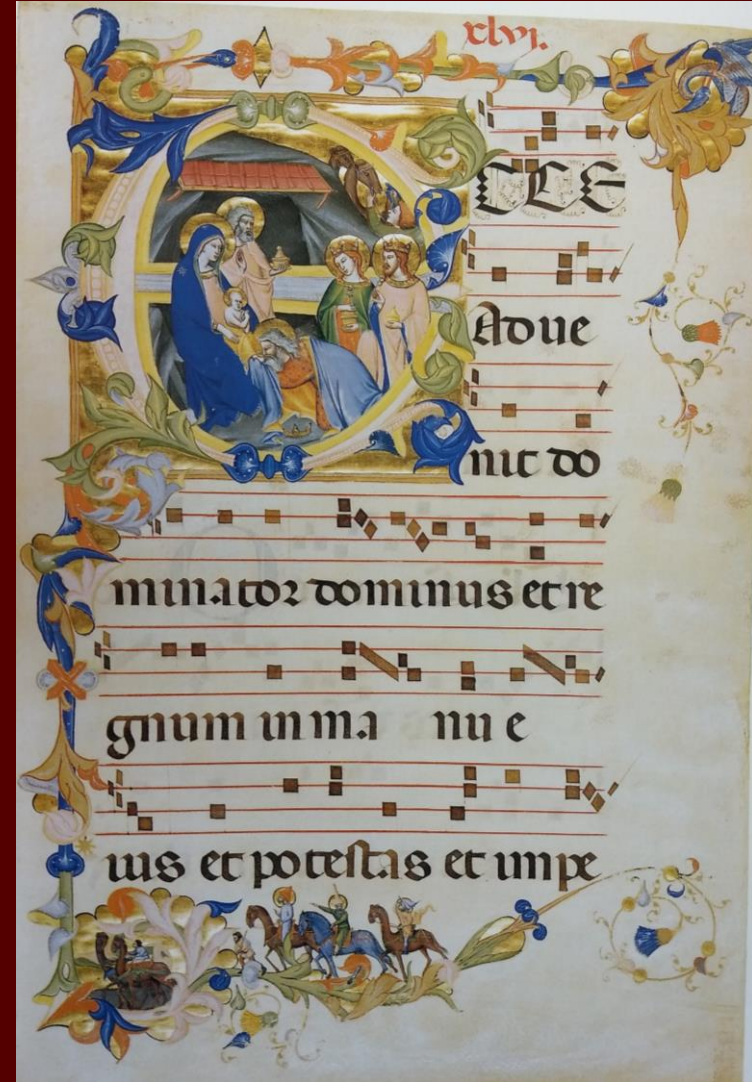 xlvj.
ECCE
Adue
nit do
minator dominus et re
gnum in ma nu e
ius et potestas et impe